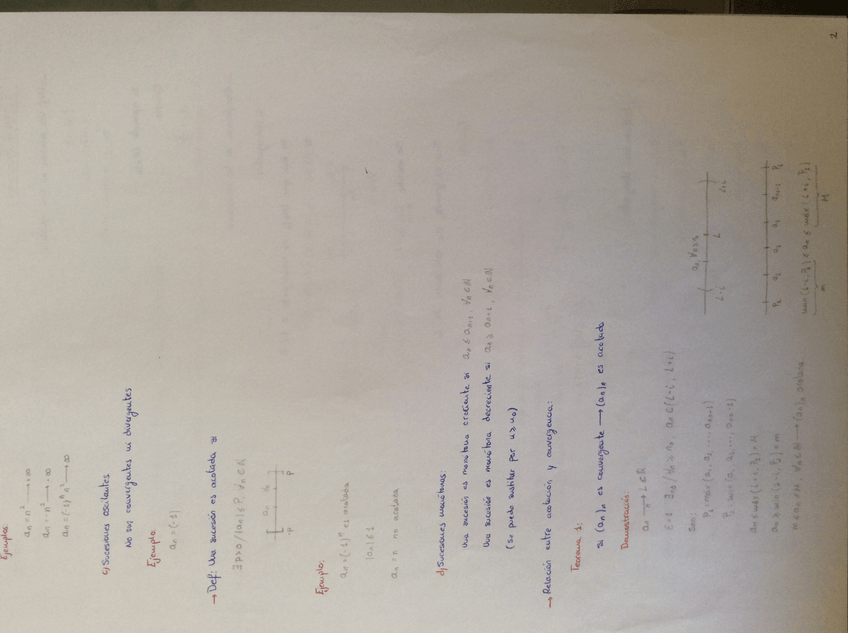 Ejemplo:
aₙ = n² → +∞
aₙ = -n² → -∞
aₙ = (-1)ⁿ n² → ∞
c) Sucesiones oscilantes
No son convergentes ni divergentes
Ejemplo:
aₙ = (-1)
→ Def: Una sucesión es acotada si
∃ P>0 / |aₙ| ≤ P, ∀n ∈ N
-P aₙ P
Ejemplo:
aₙ = (-1)ⁿ es acotada
|aₙ| ≤ 1
aₙ = n no acotada
d) Sucesiones monótonas:
Una sucesión es monótona creciente si aₙ ≤ aₙ₊₁, ∀n ∈ N
Una sucesión es monótona decreciente si aₙ ≥ aₙ₊₁, ∀n ∈ N
(Se puede sustituir por n ≥ n₀)
→ Relación entre acotación y convergencia:
Teorema 1:
si (aₙ)ₙ es convergente → (aₙ)ₙ es acotada
Demostración:
aₙ → L ∈ R
aₙ ∈ (L-1, L+1)
aₙ ∀n ≥ n₀
L-1 L L+1
Sean:
P₂ a₃ a₂ a₁ P₁
(aₙ)ₙ acotada.
m M
2